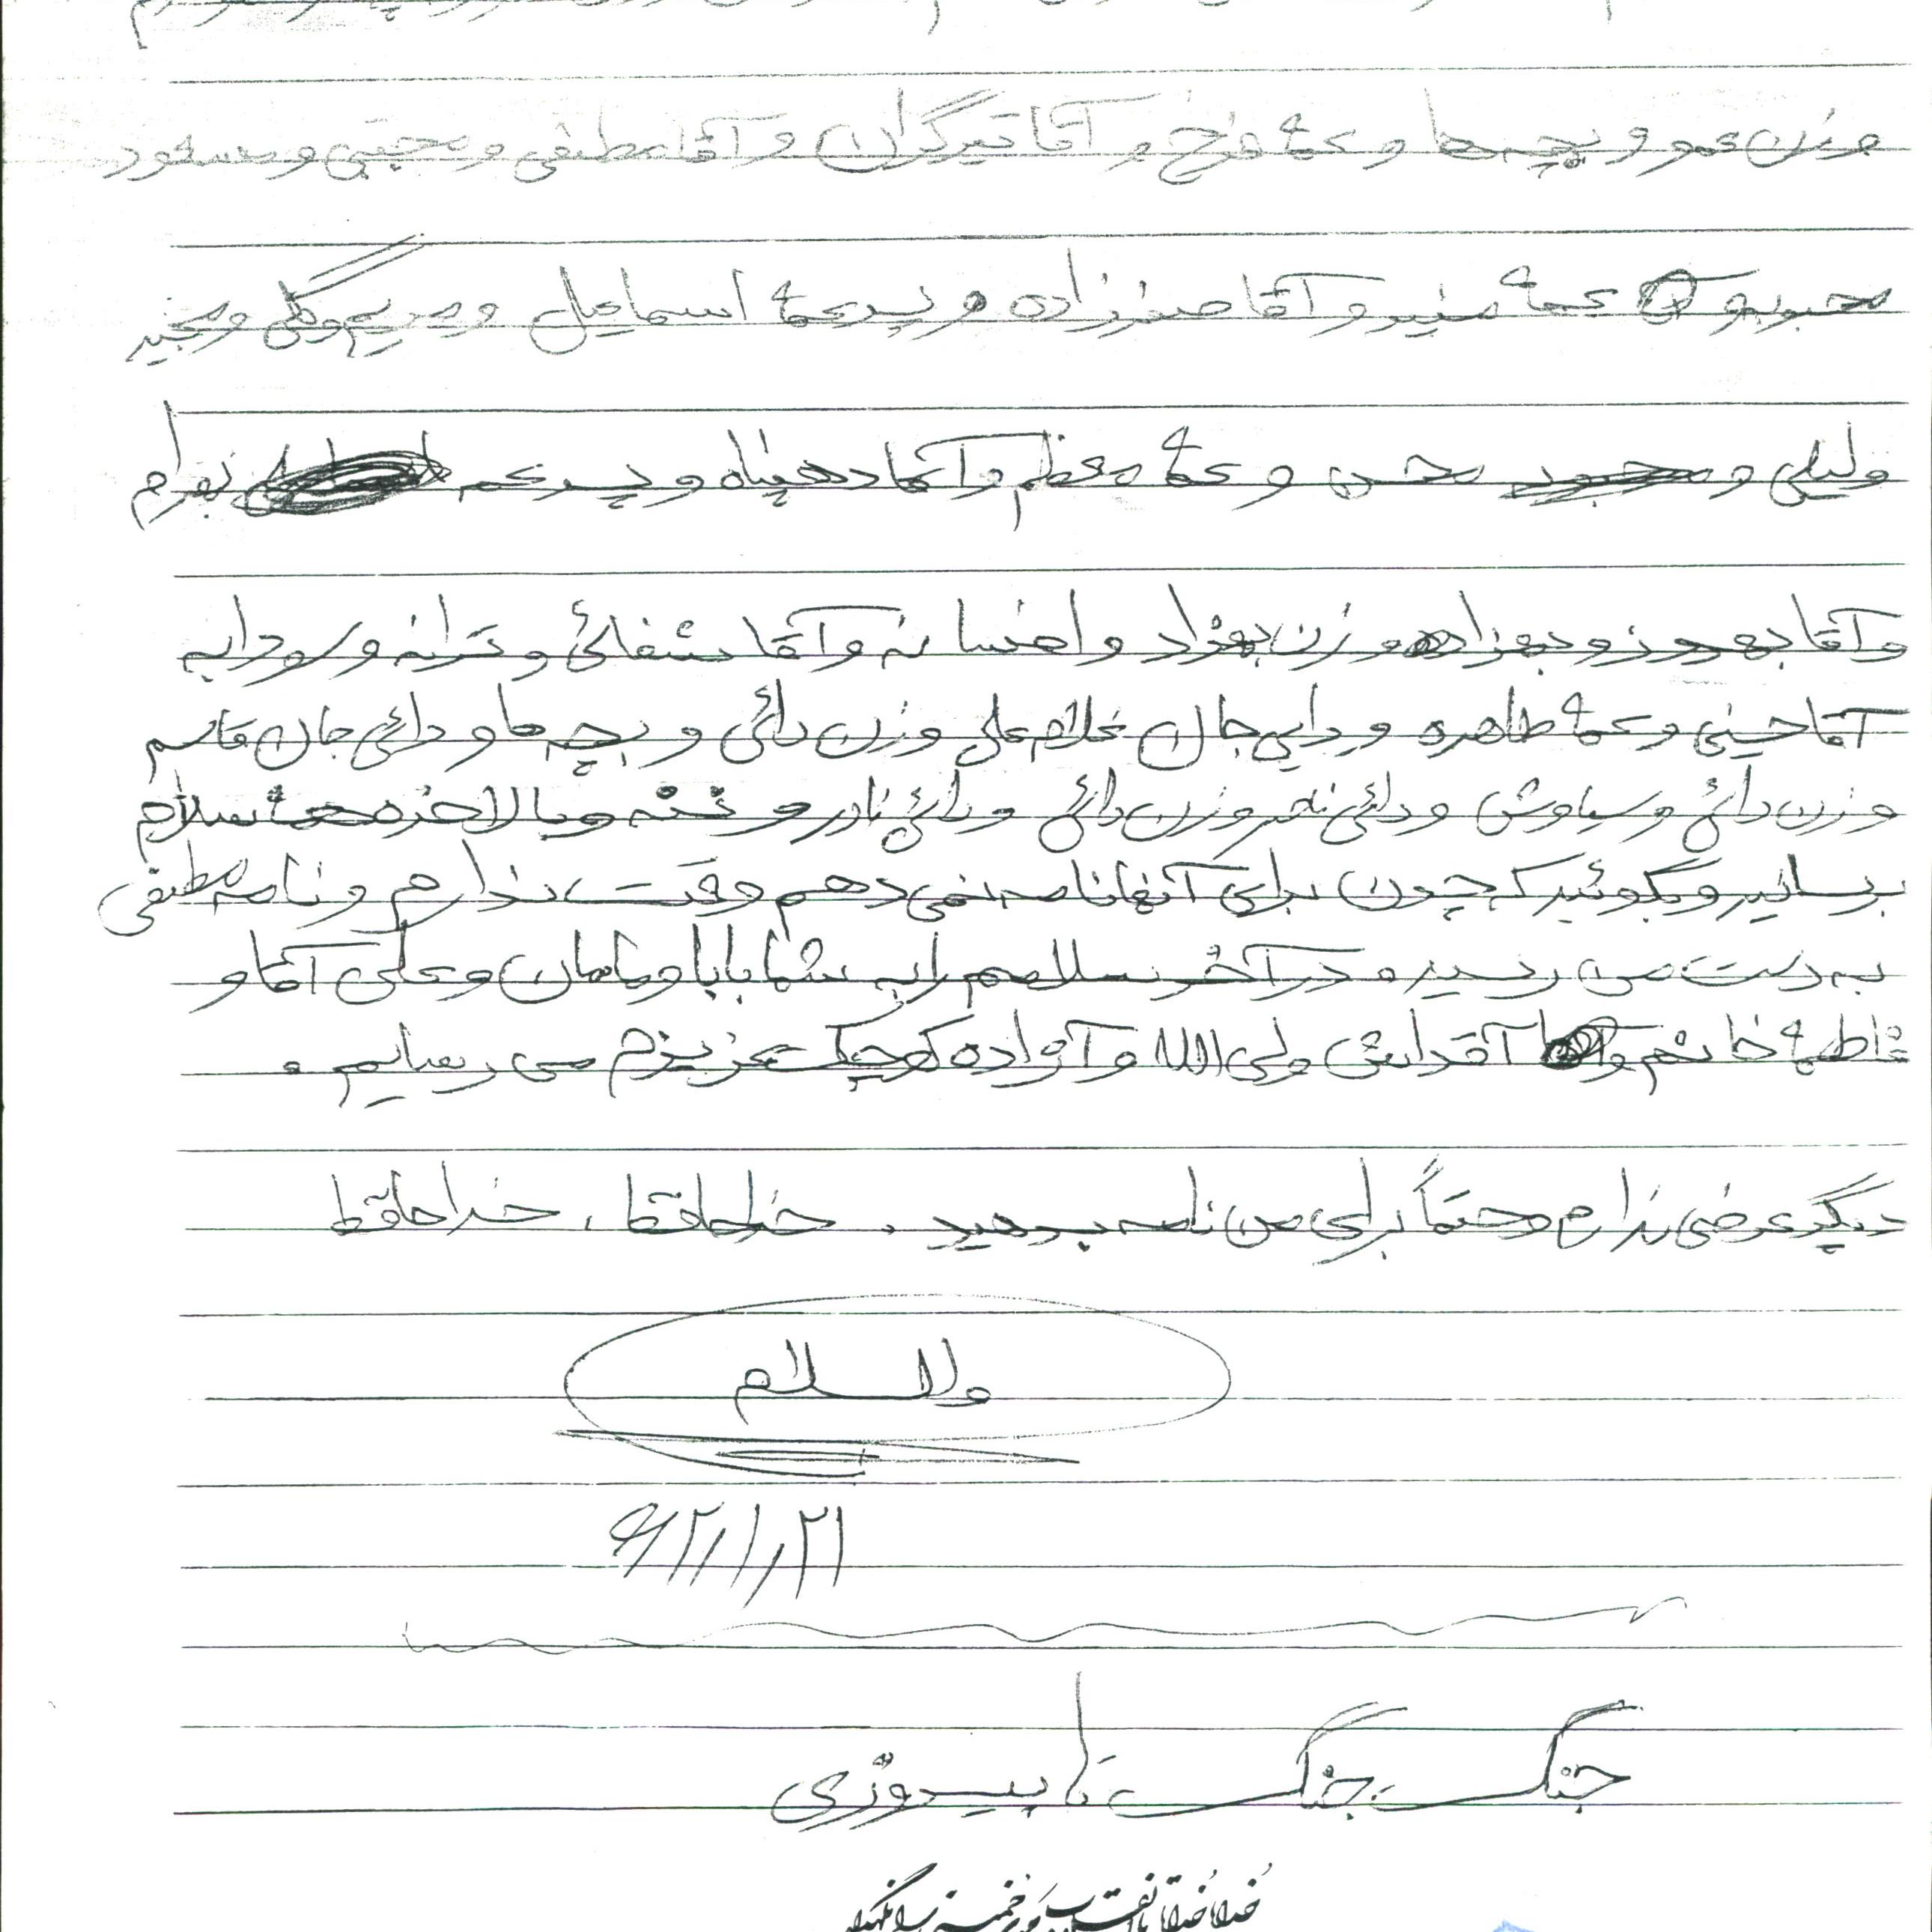 و زن عمو و بچه ها و عمه فرخ و آقا تیرگران و آقا مصطفی و مجتبی و مسعود
محبوبه و عمه منیر و آقا صفرزاده و پسر عمه اسماعیل و مریم و گلی و مجید
و لیلی و محسن و عمه معظم و آقا دهپناه و پسر عمه بهرام
و آقا بهروز و بهزاد و زن بهزاد و افسانه و آقا شفائی و ترانه و سودابه
آقا حسینی و عمه طاهره و دایی جان غلامعلی و زن دائی و بچه ها و دائی جان قاسم
و زن دائی و سیاوش و دائی نصیر و زن دائی و دائی نادر و ننه و بالاخره همه سلام
برسانید و بگوئید که چون برای آنها نامه نمی دهم وقت ندارم و نامه مصطفی
به دست من رسید و در آخر سلامم را به شما بابا و مامان و علی آقا و
فاطمه خانم و آقداش ولی الله و آزاده کوچک عزیزم می رسانم .
دیگر عرضی ندارم حتماً برای من نامه بدهید . خداحافظ ، خداحافظ
والسلام
۶۲/۱/۲۱
جنگ جنگ تا پیروزی
خدایا خدایا تا انقلاب مهدی خمینی را نگهدار